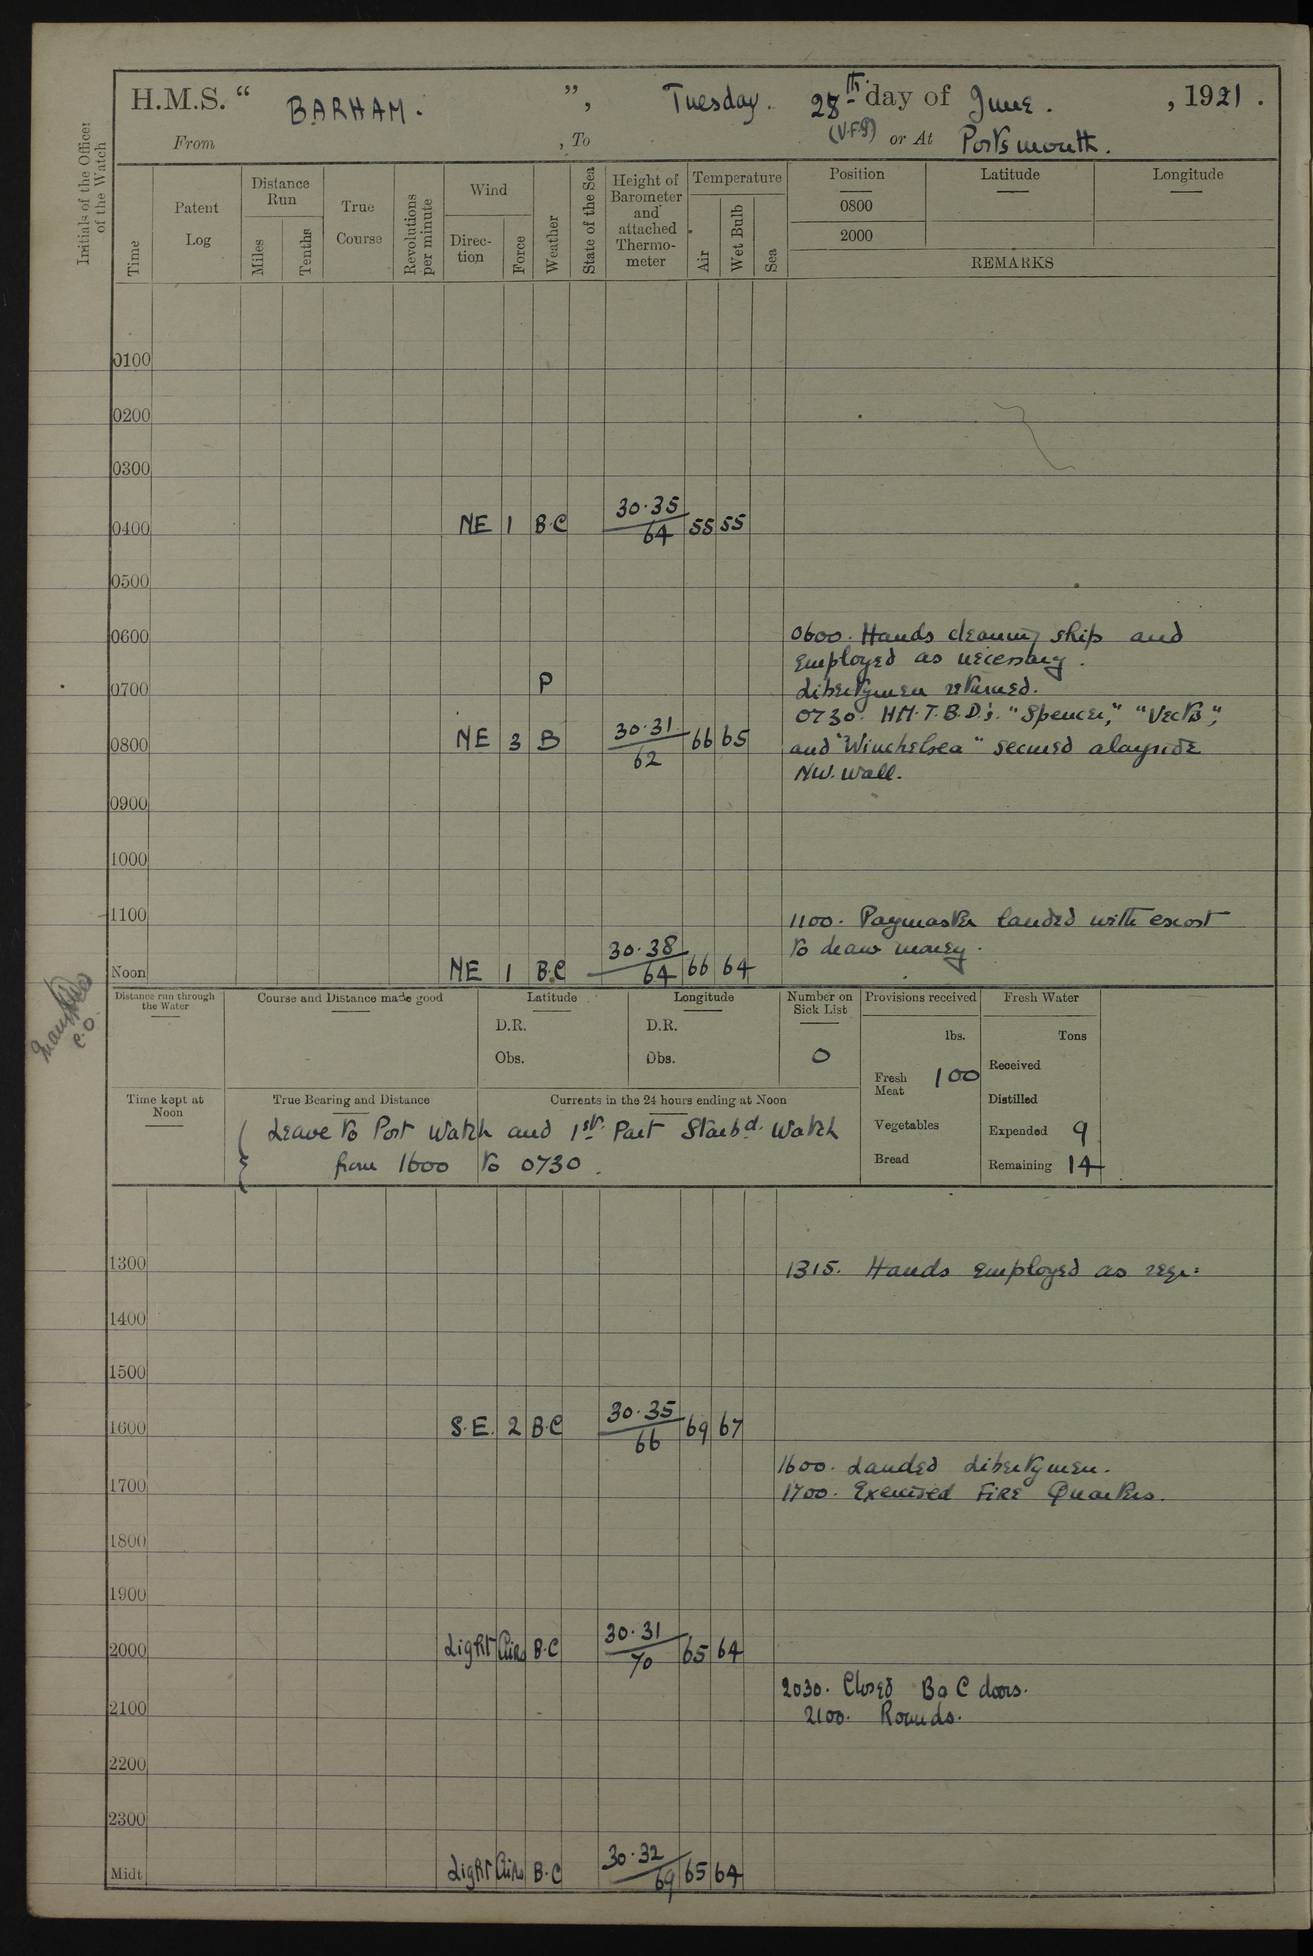 H.M.S. “ BARHAM. ”, Tuesday. 28th day of June. , 1921.
From , To (V.F.9) or At Portsmouth.
Initials of the Officer of the Watch
Time
Patent Log
Distance Run
Miles
Tenths
True Course
Revolutions per minute
Wind
Direction
Force
Weather
State of the Sea
Height of Barometer and attached Thermometer
Temperature
Air
Wet Bulb
Sea
Position Latitude Longitude
0800
2000
REMARKS
0100
0200
0300
0400 NE 1 B.C 30.35/64 55 55
0500
0600
0600. Hands cleaning ship and
employed as necessary.
0700 P
Libertymen returned.
0730. HM.T.B.D's. "Spencer," "Vects",
0800 NE 3 B 30.31/62 66 65
and "Winchelsea" secured alongside
NW. wall.
0900
1000
1100
1100. Paymaster landed with escort
to draw money.
Noon NE 1 B.C 30.38/64 66 64
C.O.
Distance run through the Water
Course and Distance made good
Latitude
D.R.
Obs.
Longitude
D.R.
Obs.
Number on Sick List
0
Provisions received
lbs.
Fresh Meat 100
Vegetables
Bread
Fresh Water
Tons
Received
Distilled
Expended 9
Remaining 14
Time kept at Noon
True Bearing and Distance
Currents in the 24 hours ending at Noon
Leave to Port Watch and 1st. Part Starbd. Watch
from 1600 to 0730.
1300
1315. Hands employed as requ:
1400
1500
1600 S.E. 2 B.C 30.35/66 69 67
1600. Landed Libertymen.
1700
1700. Exercised FIRE Quarters.
1800
1900
2000 Light Airs B.C 30.31/70 65 64
2030. Closed B & C doors.
2100
2100. Rounds.
2200
2300
Midt. Light Airs B.C 30.32/69 65 64